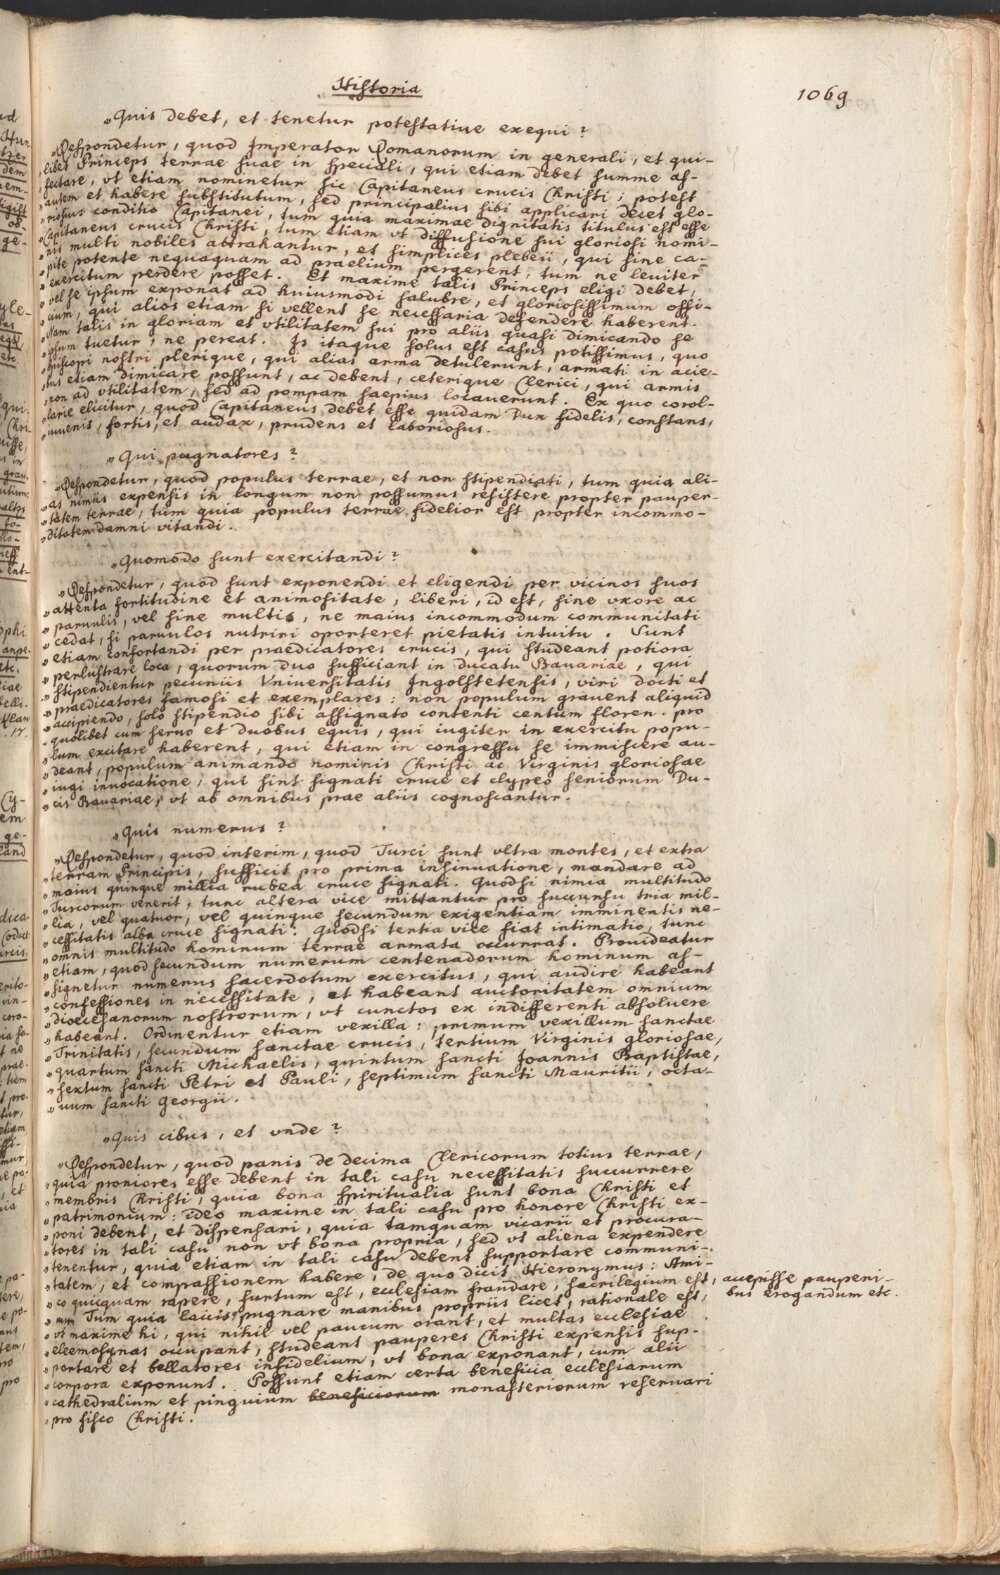 Historia
1069
„Quis debet, et tenetur potestatiue exequi?
„Respondetur, quod Imperator Romanorum in generali, et qui-
„libet Princeps terrae suae in speciali, qui etiam debet summe af-
„fectare, vt etiam nominetur sic Capitaneus crucis Christi; potest
„autem et habere substitutum, sed principalius sibi applicari decet glo-
„riosius conditio Capitanei, tum quia maximae dignitatis titulus est esse
„Capitaneus crucis Christi, tum etiam vt diffusione sui gloriosi nomi-
„nis multi nobiles attrahantur, et simplices plebeii, qui sine ca-
„pite potente nequaquam ad praelium pergerent, tum ne leuiter
„exercitum perdere posset. Et maxime talis Princeps eligi debet,
„vel se ipsum exponat ad huiusmodi salubre, et gloriosissimum offi-
„cium, qui alios etiam si vellent se necessaria defendere haberent.
„Nam talis in gloriam et vtilitatem sui pro aliis quasi dimicando se
„ipsum tuetur, ne pereat. Is itaque solus est casus potissimus, quo
„Episcopi nostri plerique, qui alias arma detulerunt, armati in acie-
„bus etiam dimicare possunt, ac debent, ceterique Clerici, qui armis
„non ad vtilitatem, sed ad pompam saepius locauerunt. Ex quo corol-
„larie elicitur, quod Capitaneus debet esse quidam Dux fidelis, constans,
„iuuenis, fortis, et audax, prudens et laboriosus.
„Qui pugnatores?
„Respondetur, quod populus terrae, et non stipendiati, tum quia ali-
„as nimiis expensis in longum non possumus resistere propter pauper-
„tatem terrae, tum quia populus terrae fidelior est propter incommo-
„ditatem damni vitandi.
„Quomodo sunt exercitandi?
„Respondetur, quod sunt exponendi et eligendi per vicinos suos
„attenta fortitudine et animositate, liberi, id est, sine vxore ac
„paruulis, vel sine multis, ne maius incommodum communitati
„cedat, si paruulos nutriri oporteret pietatis intuitu. Sunt
„etiam confortandi per praedicatores crucis, qui studeant potiora
„perlustrare loca, quorum duo sufficiant in ducatu Bauariae, qui
„stipendientur pecuniis Vniuersitatis Ingolstetensis, viri docti et
„praedicatores famosi et exemplares: non populum grauent aliquid
„accipiendo, solo stipendio sibi assignato contenti centum floren. pro
„quolibet cum seruo et duobus equis, qui iugiter in exercitu popu-
„lum excitare haberent, qui etiam in congressu se immiscere au-
„deant, populum animando nominis Christi ac Virginis gloriosae
„iugi inuocatione, qui sint signati cruce et clypeo seniorum Du-
„cis Bauariae, vt ab omnibus prae aliis cognoscantur.
„Quis numerus?
„Respondetur, quod interim, quod Turci sunt vltra montes, et extra
„terram Principis, sufficit pro prima insinuatione, mandare ad
„maius quinque millia rubea cruce signati. Quodsi nimia multitudo
„Turcorum venerit, tunc altera vice mittantur pro succursu tria mil-
„lia, vel quatuor, vel quinque secundum exigentiam imminentis ne-
„cessitatis alba cruce signati. Quodsi tertia vice fiat intimatio, tunc
„omnis multitudo hominum terrae armata occurrat. Prouideatur
„etiam, quod secundum numerum centenadorum hominum as-
„signetur numerus sacerdotum exercitus, qui audire habeant
„confessiones in necessitate, et habeant auctoritatem omnium
„dioecesanorum nostrorum, vt cunctos ex indifferenti absoluere
„habeant. Ordinentur etiam vexilla: primum vexillum sanctae
„Trinitatis, secundum sanctae crucis, tertium Virginis gloriosae,
„quartum sancti Michaelis, quintum sancti Joannis Baptistae,
„sextum sancti Petri et Pauli, septimum sancti Mauritii, octa-
„uum sancti Georgii.
„Quis cibus, et vnde?
„Respondetur, quod panis de decima Clericorum totius terrae,
„quia proniores esse debent in tali casu necessitatis succurrere
„membris Christi, quia bona spiritualia sunt bona Christi et
„patrimonium: ideo maxime in tali casu pro honore Christi ex-
„poni debent, et dispensari, quia tamquam vicarii et procura-
„tores in tali casu non vt bona propria, sed vt aliena expendere
„tenentur, quia etiam in tali casu debent supportare communi-
„tatem, et compassionem habere, de quo dicit Hieronymus: Ami-
„co quicquam rapere, furtum est, ecclesiam fraudare, sacrilegium est, accepisse pauperi-
bus erogandum etc.
„Tum quia laicis pugnare manibus propriis licet, rationale est,
„vt maxime hi, qui nihil vel paucum orant, et multas ecclesiae
„eleemosynas occupant, studeant pauperes Christi expensis sup-
„portare et bellatores infidelium, vt bona exponant, cum alii
„corpora exponunt. Possunt etiam certa beneficia ecclesiarum
„cathedralium et pinguium beneficiorum monasteriorum reseruari
„pro fisco Christi.